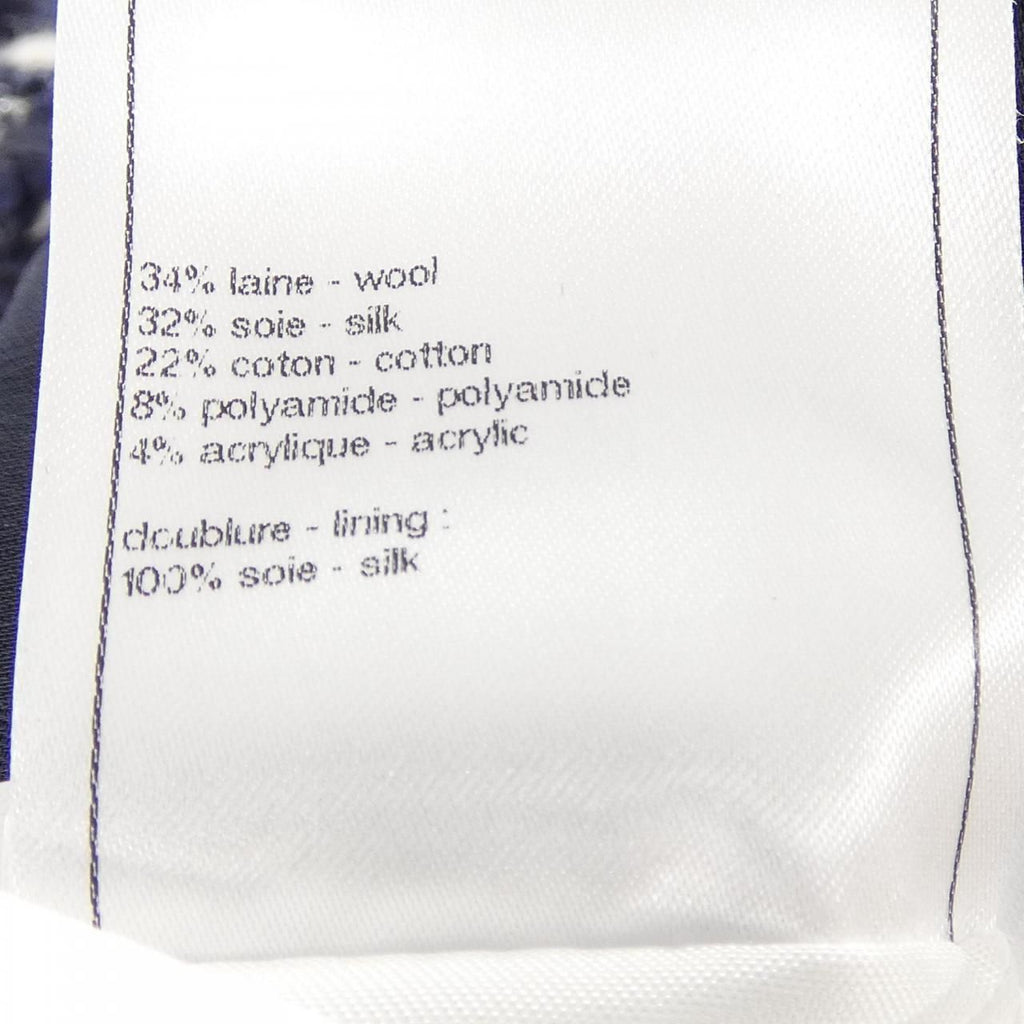 34% laine - wool
32% soie - silk
22% coton - cotton
8% polyamide - polyamide
4% acrylique - acrylic
doublure - lining :
100% soie - silk